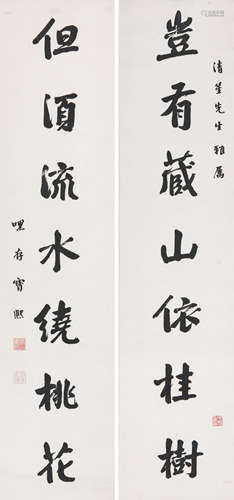 清筌先生雅属
豈有藏山依桂樹
但須流水繞桃花
寶熙